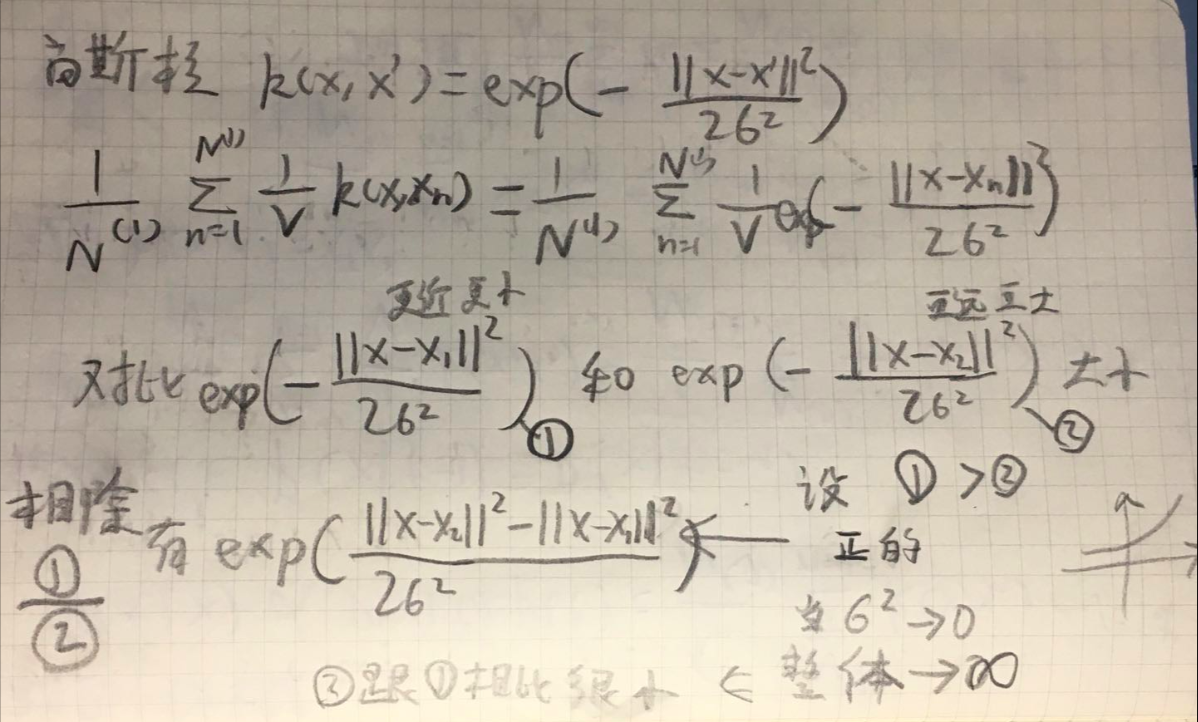 高斯核 k(x, x') = exp(- ||x-x'||² / 2σ²)
1/N⁽¹⁾ Σ_{n=1}^{N⁽¹⁾} 1/V k(x, xₙ) = 1/N⁽¹⁾ Σ_{n=1}^{N⁽¹⁾} 1/V exp(- ||x-xₙ||² / 2σ²)
更近更小 更远更大
对比 exp(- ||x-x₁||² / 2σ²) ① 和 exp(- ||x-x₂||² / 2σ²) ② 大小
设 ① > ②
相除 ①/② 有 exp( (||x-x₂||² - ||x-x₁||²) / 2σ² ) ← 正的
当 σ² → 0
②跟①相比很小 ← 整体 → ∞